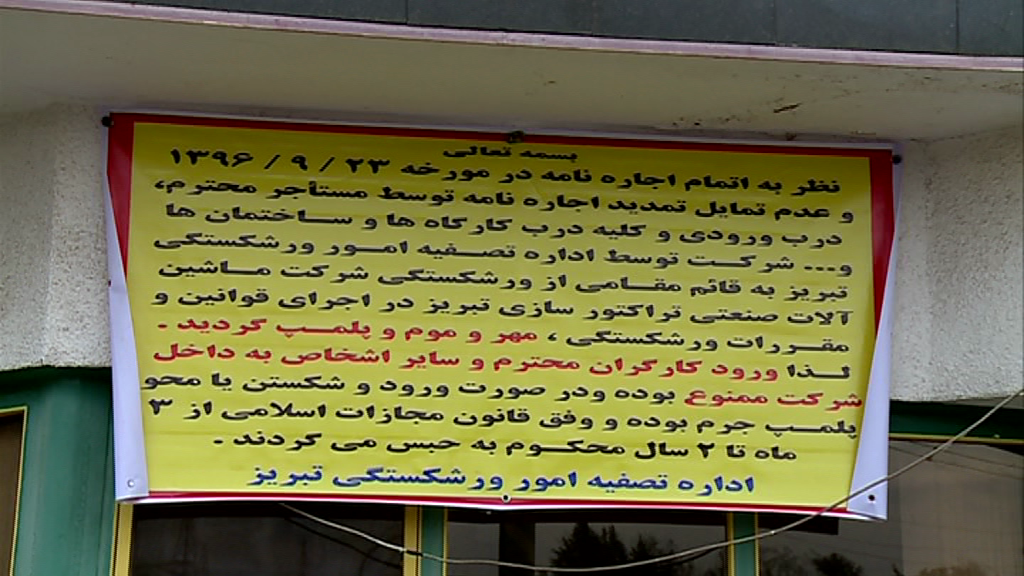 بسمه تعالی
نظر به اتمام اجاره نامه در مورخه ۲۳ / ۹ / ۱۳۹۶
و عدم تمایل تمدید اجاره نامه توسط مستأجر محترم،
درب ورودی و کلیه درب کارگاه ها و ساختمان ها
و... شرکت توسط اداره تصفیه امور ورشکستگی
تبریز به قائم مقامی از ورشکستگی شرکت ماشین
آلات صنعتی تراکتور سازی تبریز در اجرای قوانین و
مقررات ورشکستگی ، مهر و موم و پلمپ گردید .
لذا ورود کارگران محترم و سایر اشخاص به داخل
شرکت ممنوع بوده ودر صورت ورود و شکستن یا محو
پلمپ جرم بوده و وفق قانون مجازات اسلامی از ۳
ماه تا ۲ سال محکوم به حبس می گردند .
اداره تصفیه امور ورشکستگی تبریز